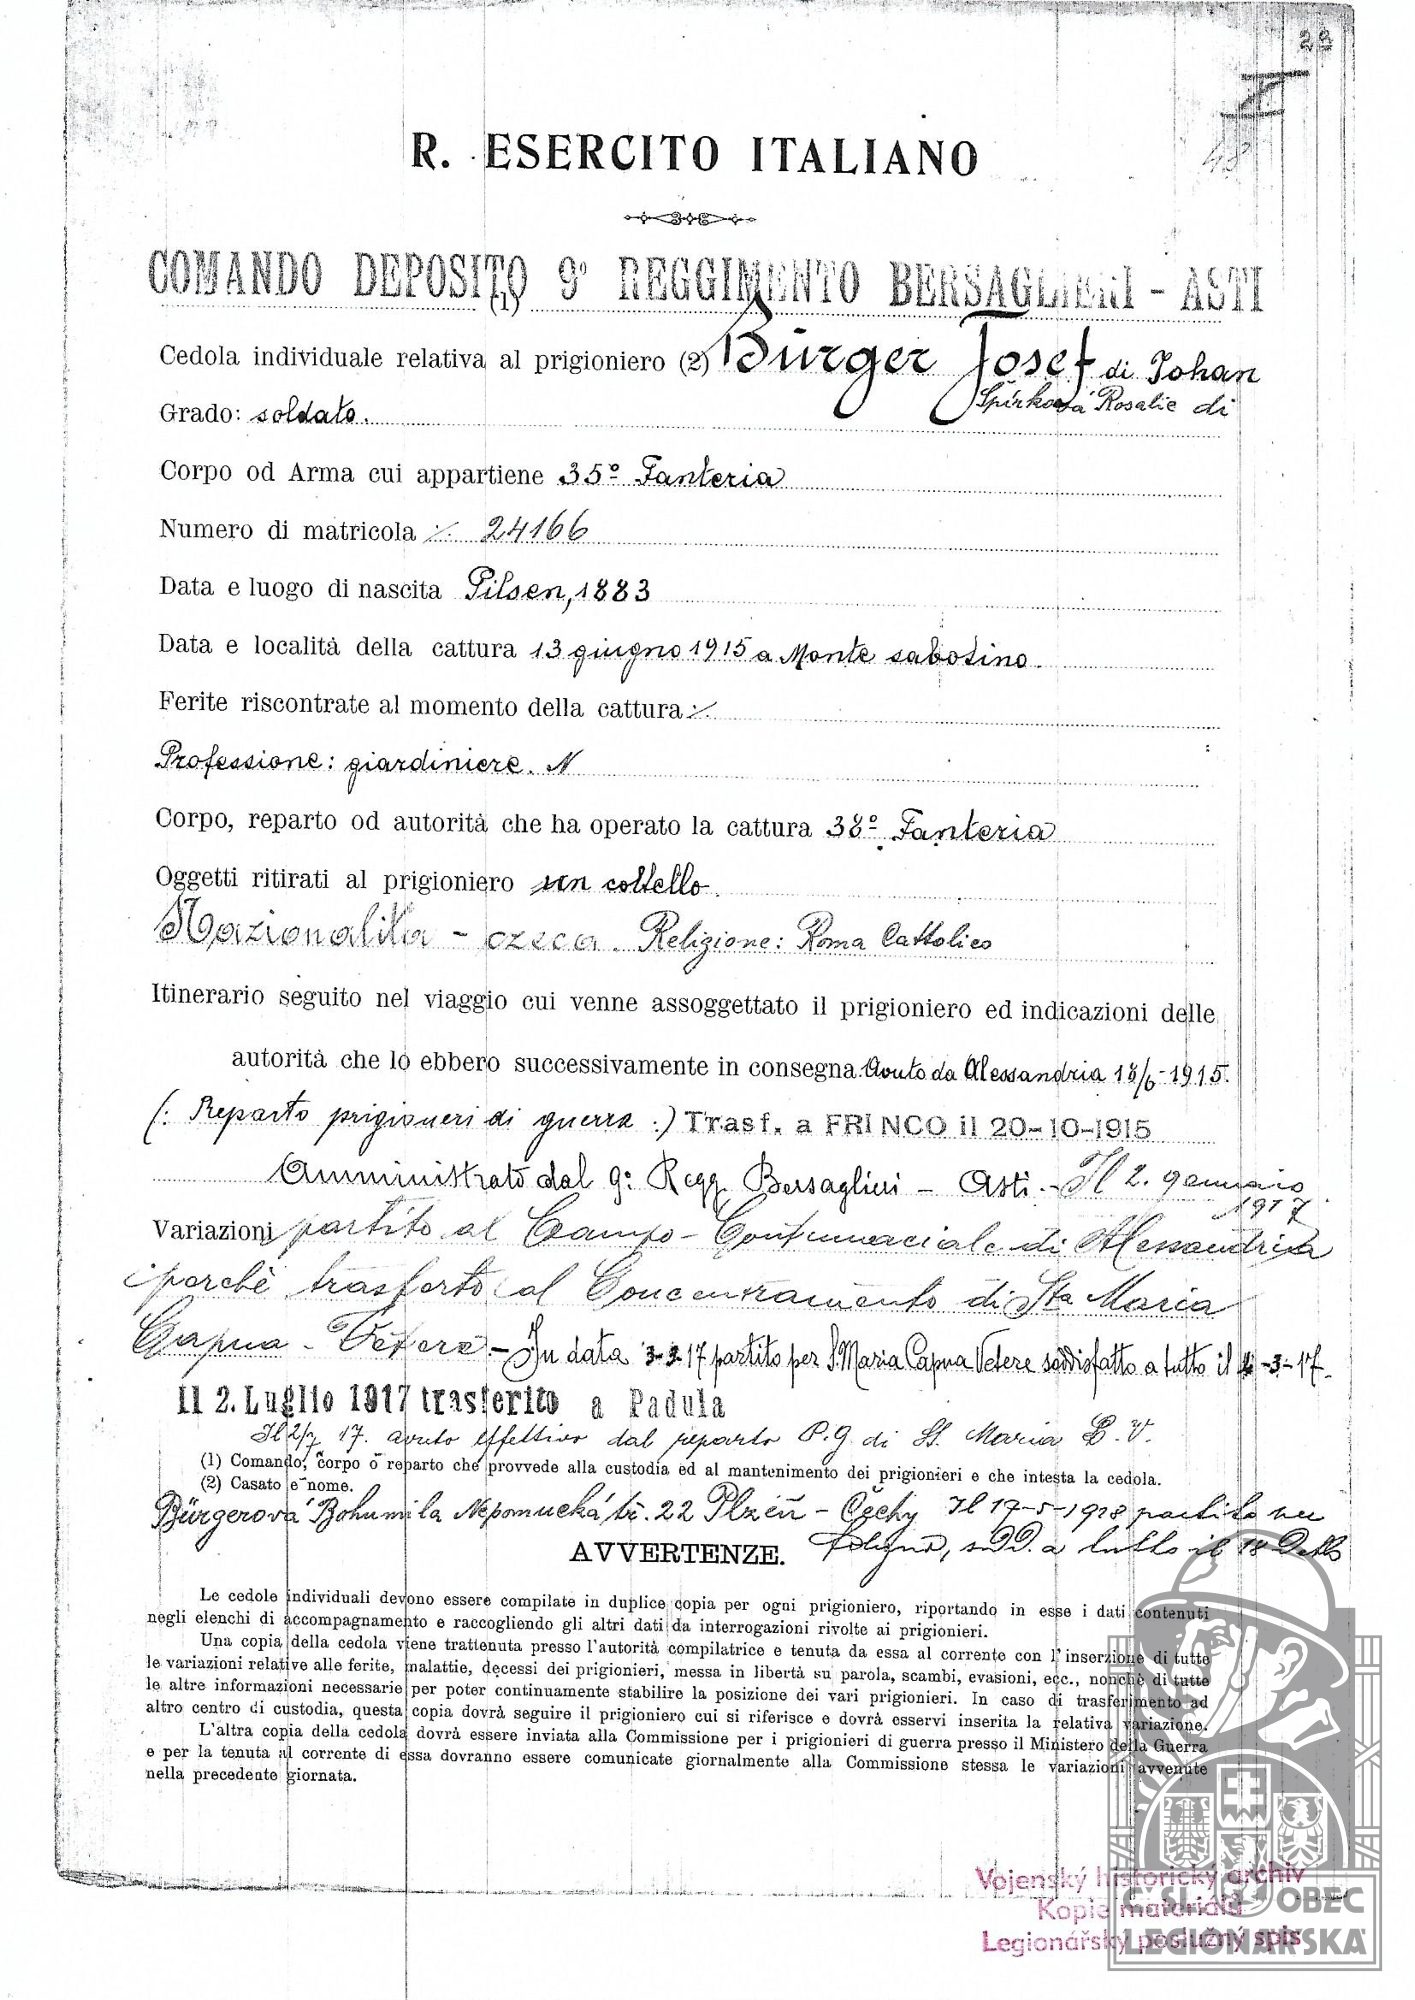 23
I
48
R. ESERCITO ITALIANO
COMANDO DEPOSITO 9° REGGIMENTO BERSAGLIERI - ASTI
(1)
Cedola individuale relativa al prigioniero (2) Bürger Josef di Johan
Grado: soldato. Špírková Rosalie di
Corpo od Arma cui appartiene 35° Fanteria
Numero di matricola ./. 24166
Data e luogo di nascita Pilsen, 1883
Data e località della cattura 13 giugno 1915 a Monte sabotino.
Ferite riscontrate al momento della cattura ./.
Professione: giardiniere. N
Corpo, reparto od autorità che ha operato la cattura 38° Fanteria
Oggetti ritirati al prigioniero un coltello.
Nazionalita - czeca. Religione: Roma Cattolico
Itinerario seguito nel viaggio cui venne assoggettato il prigioniero ed indicazioni delle
autorità che lo ebbero successivamente in consegna. Avuto da Alessandria 18/6-1915.
(: Reparto prigioneri di guerra :) Trasf. a FRINCO il 20-10-1915
Amministrato dal 9° Regg Bersaglieri - Asti. - Il 2. gennaio
1917
Variazioni partito al Campo - Contumaciale di Alessandria
perchè trasferto al Concentramento di Sta Maria
Capua - Vetere. - In data 3-3-17 partito per S. Maria Capua Vetere soddisfatto a tutto il 4-3-17.
Il 2. Luglio 1917 trasferito a Padula
Il 2/7 17. avuto effettivo dal reparto P.g di St. Maria C. V.
(1) Comando, corpo o reparto che provvede alla custodia ed al mantenimento dei prigionieri e che intesta la cedola.
(2) Casato e nome.
Bürgerová Bohumila Nepomucká tř. 22 Plzeň - Čechy Il 17-5-1918 partito per
AVVERTENZE. Foligno, sodd. a tutto il 18 Detto
Le cedole individuali devono essere compilate in duplice copia per ogni prigioniero, riportando in esse i dati contenuti
negli elenchi di accompagnamento e raccogliendo gli altri dati da interrogazioni rivolte ai prigionieri.
Una copia della cedola viene trattenuta presso l'autorità compilatrice e tenuta da essa al corrente con l'inserzione di tutte
le variazioni relative alle ferite, malattie, decessi dei prigionieri, messa in libertà su parola, scambi, evasioni, ecc., nonchè di tutte
le altre informazioni necessarie per poter continuamente stabilire la posizione dei vari prigionieri. In caso di trasferimento ad
altro centro di custodia, questa copia dovrà seguire il prigioniero cui si riferisce e dovrà esservi inserita la relativa variazione.
L'altra copia della cedola dovrà essere inviata alla Commissione per i prigionieri di guerra presso il Ministero della Guerra
e per la tenuta al corrente di essa dovranno essere comunicate giornalmente alla Commissione stessa le variazioni avvenute
nella precedente giornata.
Vojenský historický archiv
Kopie materiálu
Legionářský poslužný spis
ČSL. OBEC
LEGIONÁŘSKÁ